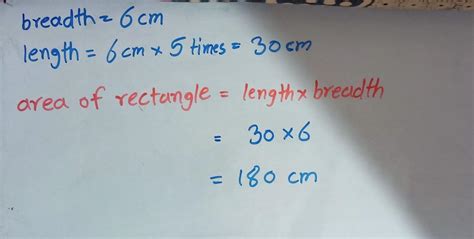 breadth = 6cm
length = 6cm × 5 times = 30cm
area of rectangle = length × breadth
= 30 × 6
= 180 cm